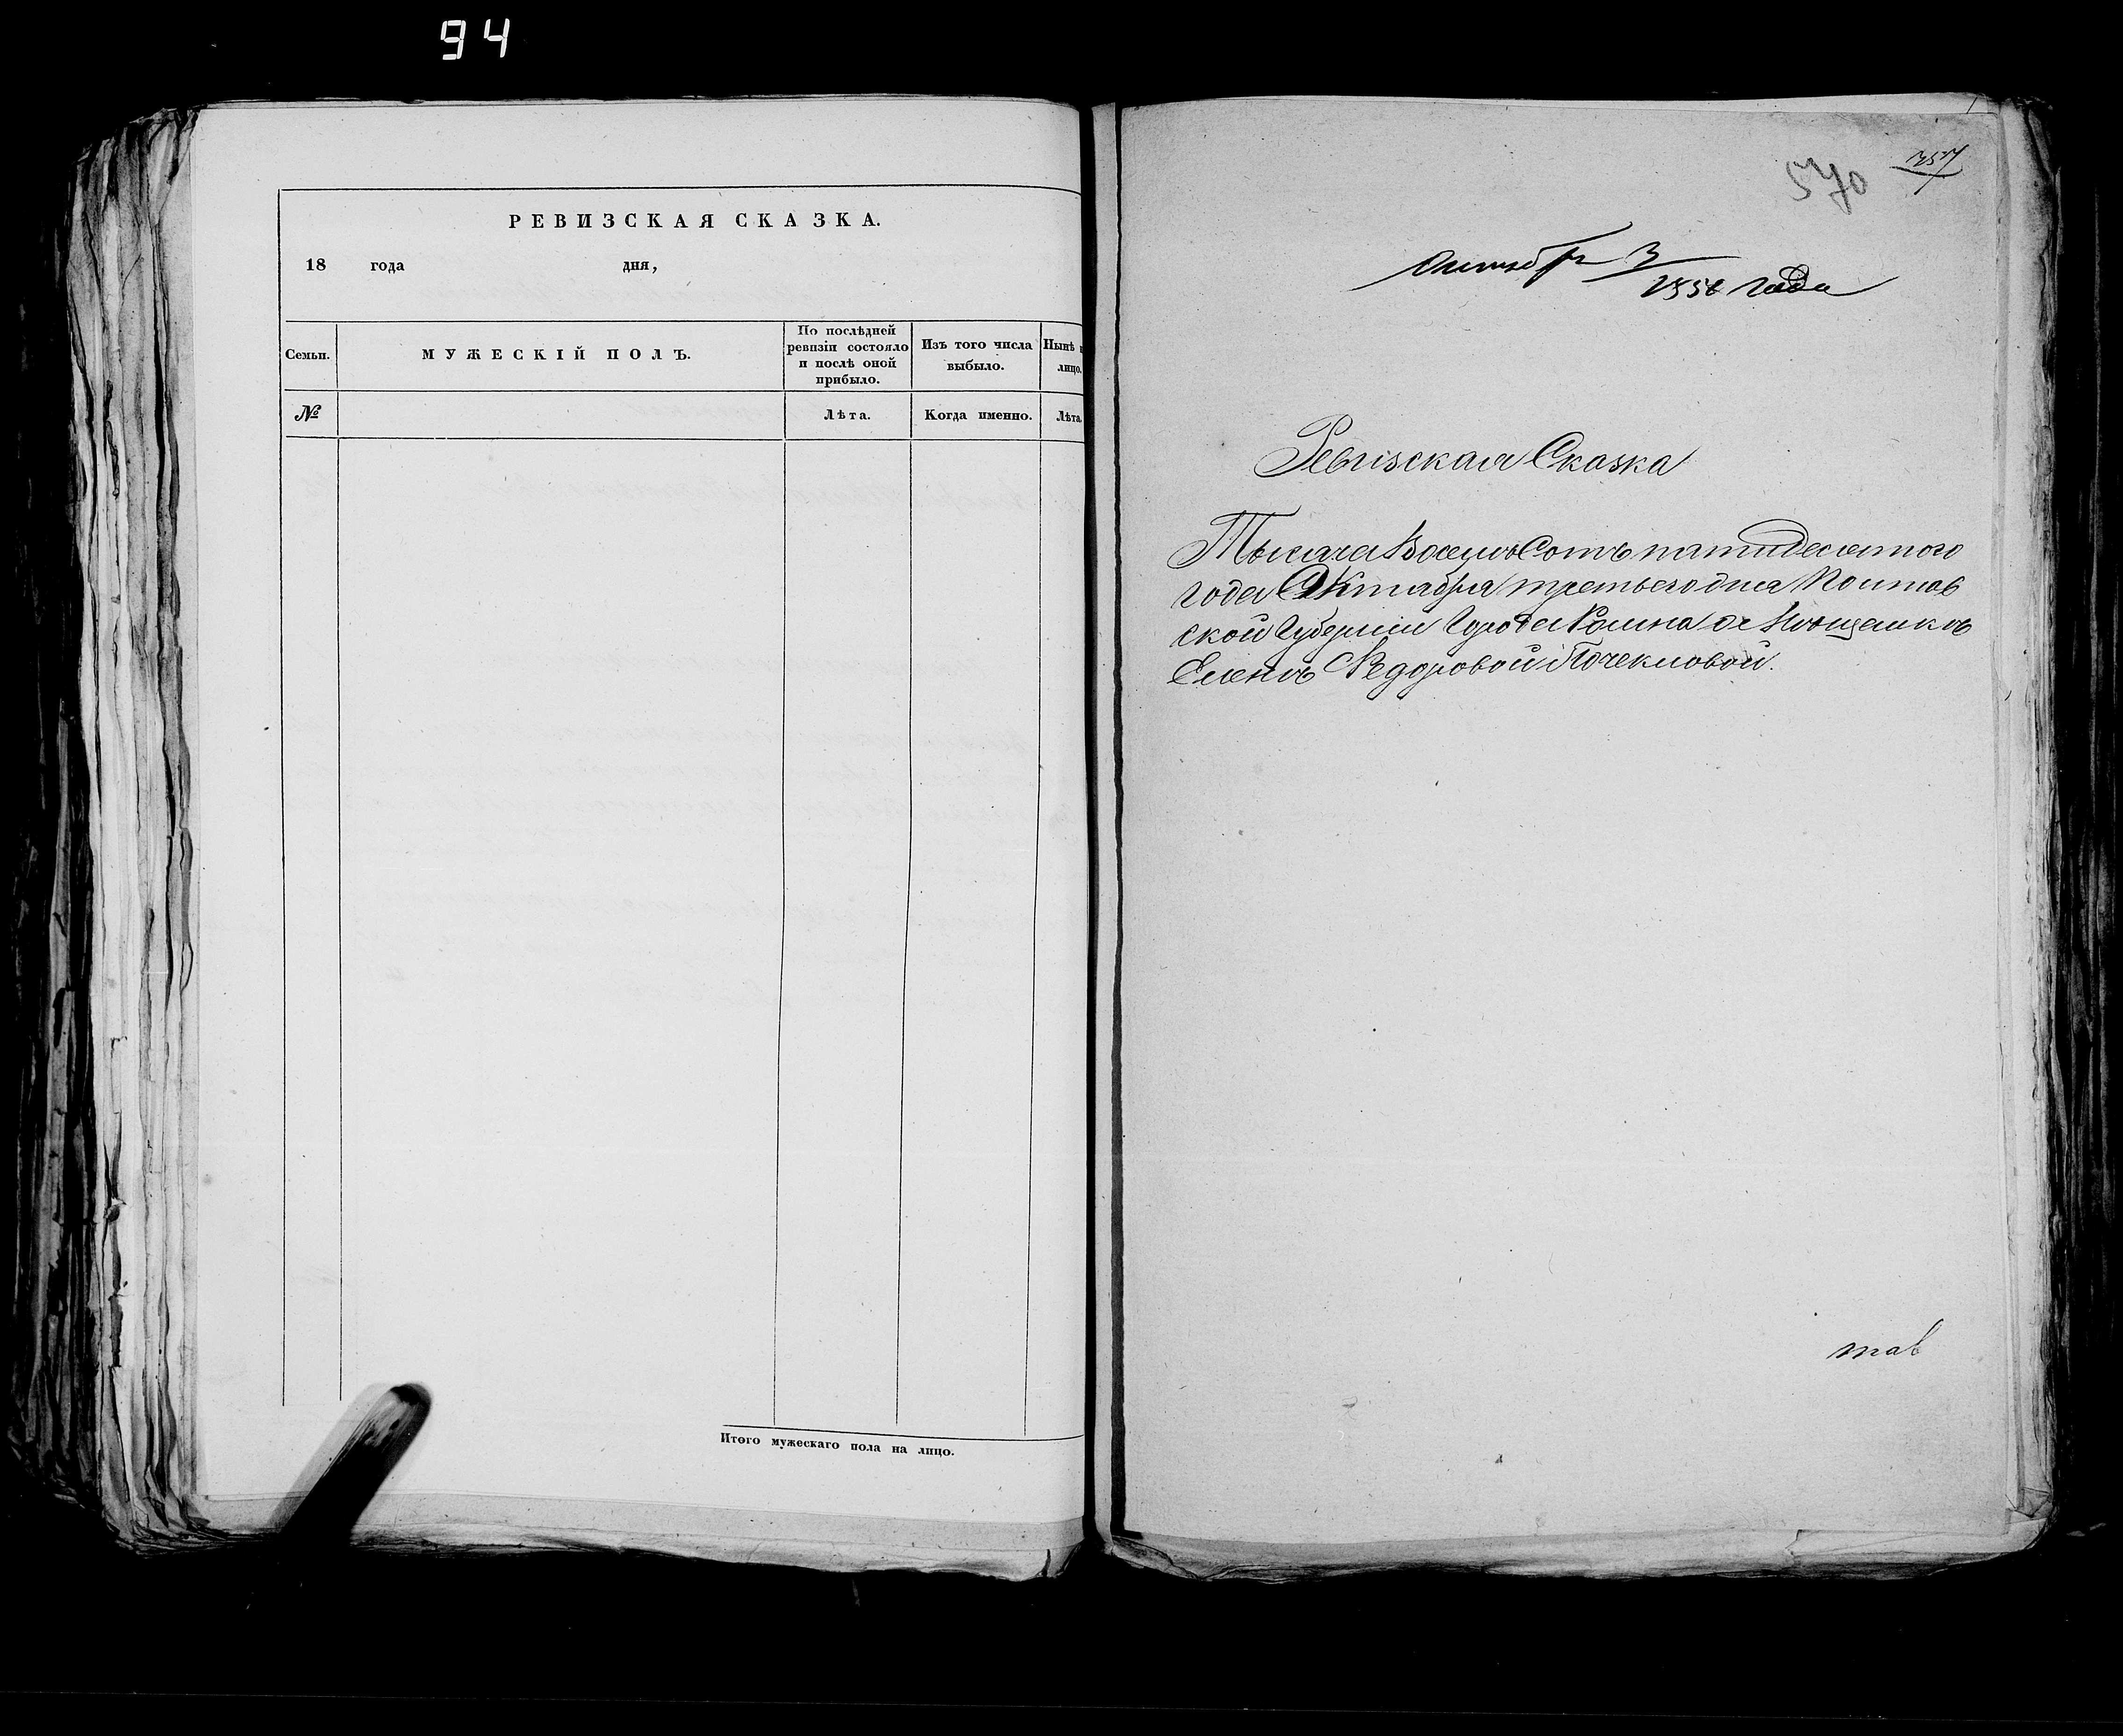 94
РЕВИЗСКАЯ СКАЗКА.
18 года дня,
Семьи.
МУЖЕСКІЙ ПОЛЪ.
По послѣдней
ревизіи состояло
и послѣ оной
прибыло.
Изъ того числа
выбыло.
Нынѣ
лицо.
№
Лѣта.
Когда именно.
Лѣта.
Итого мужескаго пола на лицо.
570
Октября 3
185 года
Ревизская Сказка
Тысяча Восемь Сотъ пятидесятого
года Октября третьего дня Полтав
ской Губернии Города Ромна о Мѣщанкѣ
Еленѣ Федоровой